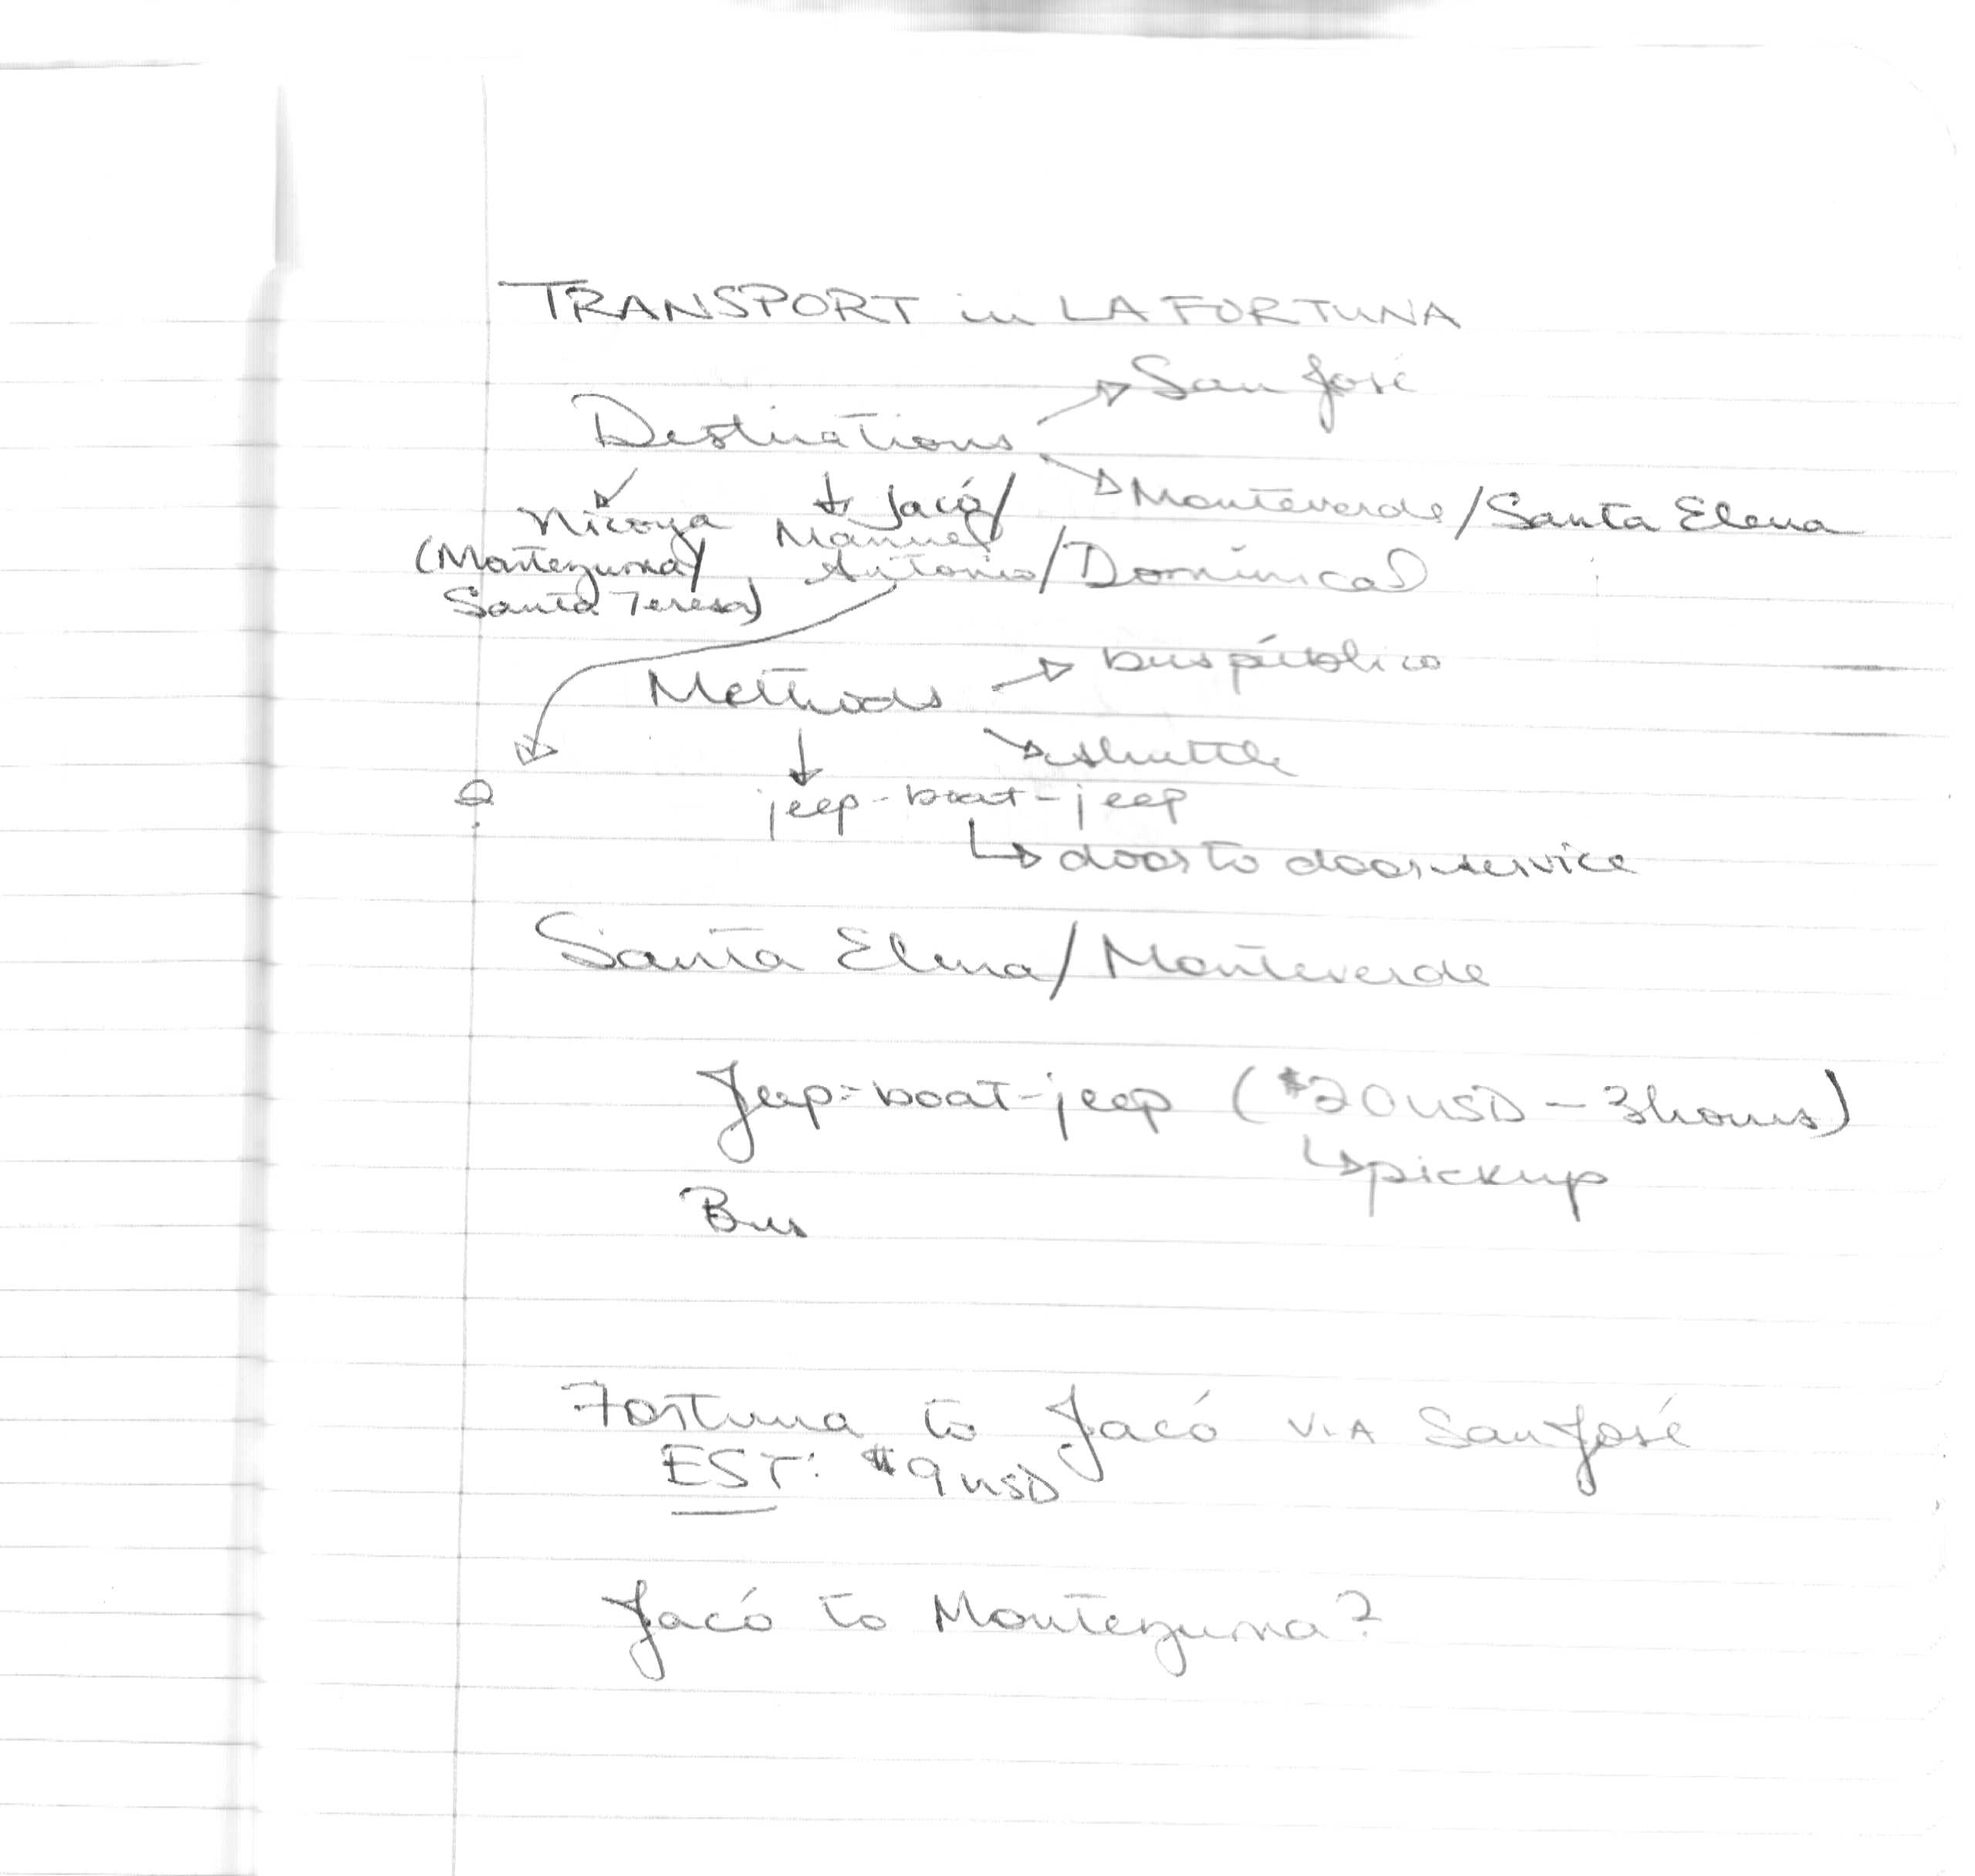 TRANSPORT in LA FORTUNA
San José
Destinations
Monteverde/Santa Elena
Nicoya
(Montezuma/
Santa Teresa)
Jacó/
Manuel
Antonio/Dominical
Methods
bus público
shuttle
jeep-boat-jeep
door to door service
Santa Elena/Monteverde
Jeep-boat-jeep ($20USD - 3hours)
pickup
Bus
Fortuna to Jacó VIA San José
EST: $9USD
Jacó to Montezuma?